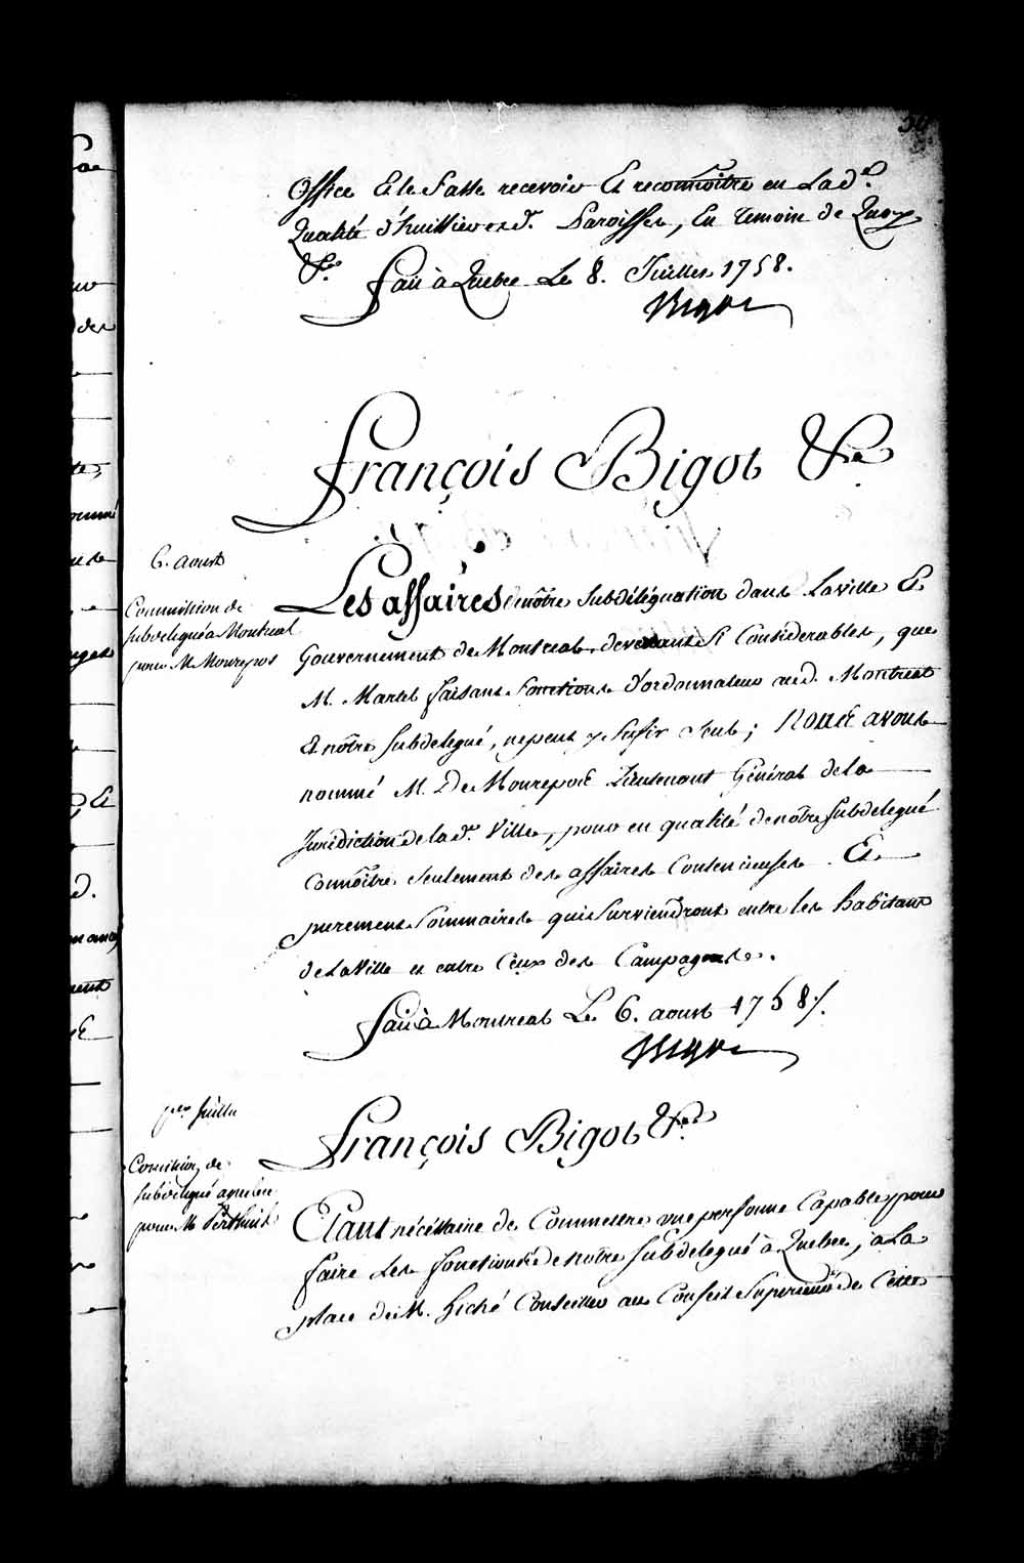 Office Et le fasse recevoir Et reconnoitre en Lad.e
Qualité d'huissier esd. Paroisses, En Temoin de Quoy
&c.
fait à Quebec Le 8. Juillet 1758.
Bigot
François Bigot &c.
6. aoust
Commission de
subdelegué a Montreal
pour M. Monrepos
Les affaires de nôtre Subdéléguation dans La ville Et
Gouvernement de Montreal, devenant si Considerables, que
M. Martel faisant fonctions d'ordonnateur aud. Montreal
Et nôtre subdelegué, ne peut y sufir seul; Nous avons
nommé M. De Monrepos Lieutenant Général de la
Juridiction de lad.e Ville, pour en qualité de nôtre subdelegué
Connoître seulement des affaires Contencieuses Et
purement Sommaires qui Surviendront entre les habitans
de La Ville et entre Ceux des Campagnes.
fait à Montreal Le 6. aoust 1758./.
Bigot
p.er juillet
Comission de
subdelegué a quebec
pour M. Perthuis
François Bigot &c.
Etant nécéssaire de Commettre une personne Capable pour
faire Les fonctions de nôtre subdelegué à Quebec, a La
place de M. hiché Conseiller au Conseil Superieur de Cette